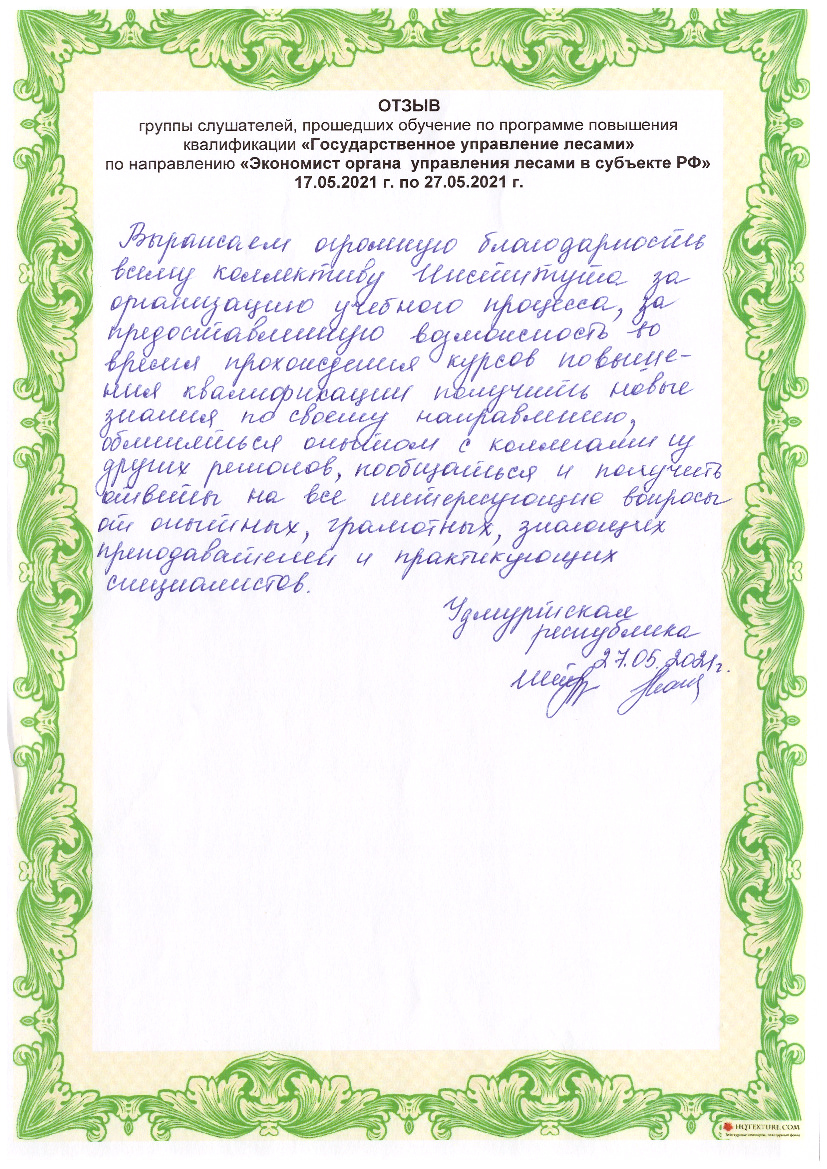 ОТЗЫВ
группы слушателей, прошедших обучение по программе повышения
квалификации «Государственное управление лесами»
по направлению «Экономист органа управления лесами в субъекте РФ»
17.05.2021 г. по 27.05.2021 г.
Выражаем огромную благодарность
всему коллективу Института за
организацию учебного процесса, за
предоставленную возможность во
время прохождения курсов повыше-
ния квалификации получить новые
знания по своему направлению,
обменяться опытом с коллегами из
других регионов, пообщаться и получить
ответы на все интересующие вопросы
от опытных, грамотных, знающих
преподавателей и практикующих
специалистов.
Удмуртская
республика
27.05.2021г.
HQTEXTURE.COM